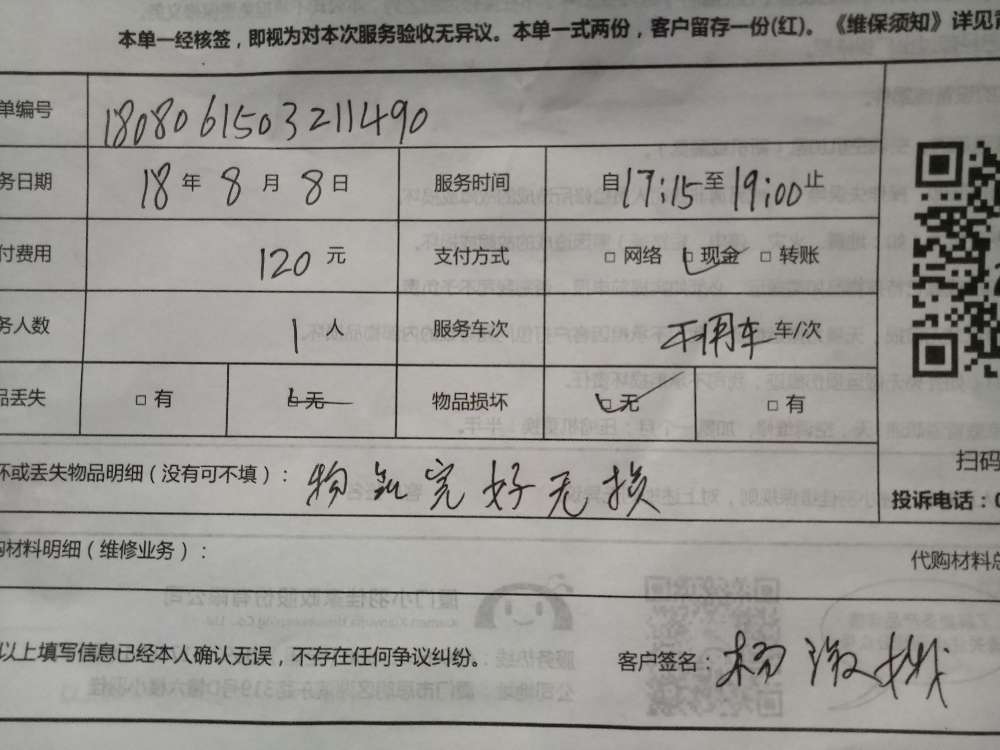 本单一经核签，即视为对本次服务验收无异议。本单一式两份，客户留存一份(红)。《维保须知》详见
单编号 1808061503211490
务日期 18 年 8 月 8 日 服务时间 自 17:15 至 19:00 止
付费用 120 元 支付方式 □ 网络 □ 现金 □ 转账
务人数 1 人 服务车次 不用车 车/次
品丢失 □ 有 □ 无 物品损坏 □ 无 □ 有
坏或丢失物品明细（没有可不填）： 物品完好无损
扫码
投诉电话：0
购材料明细（维修业务）： 代购材料总
以上填写信息已经本人确认无误，不存在任何争议纠纷。 客户签名： 杨